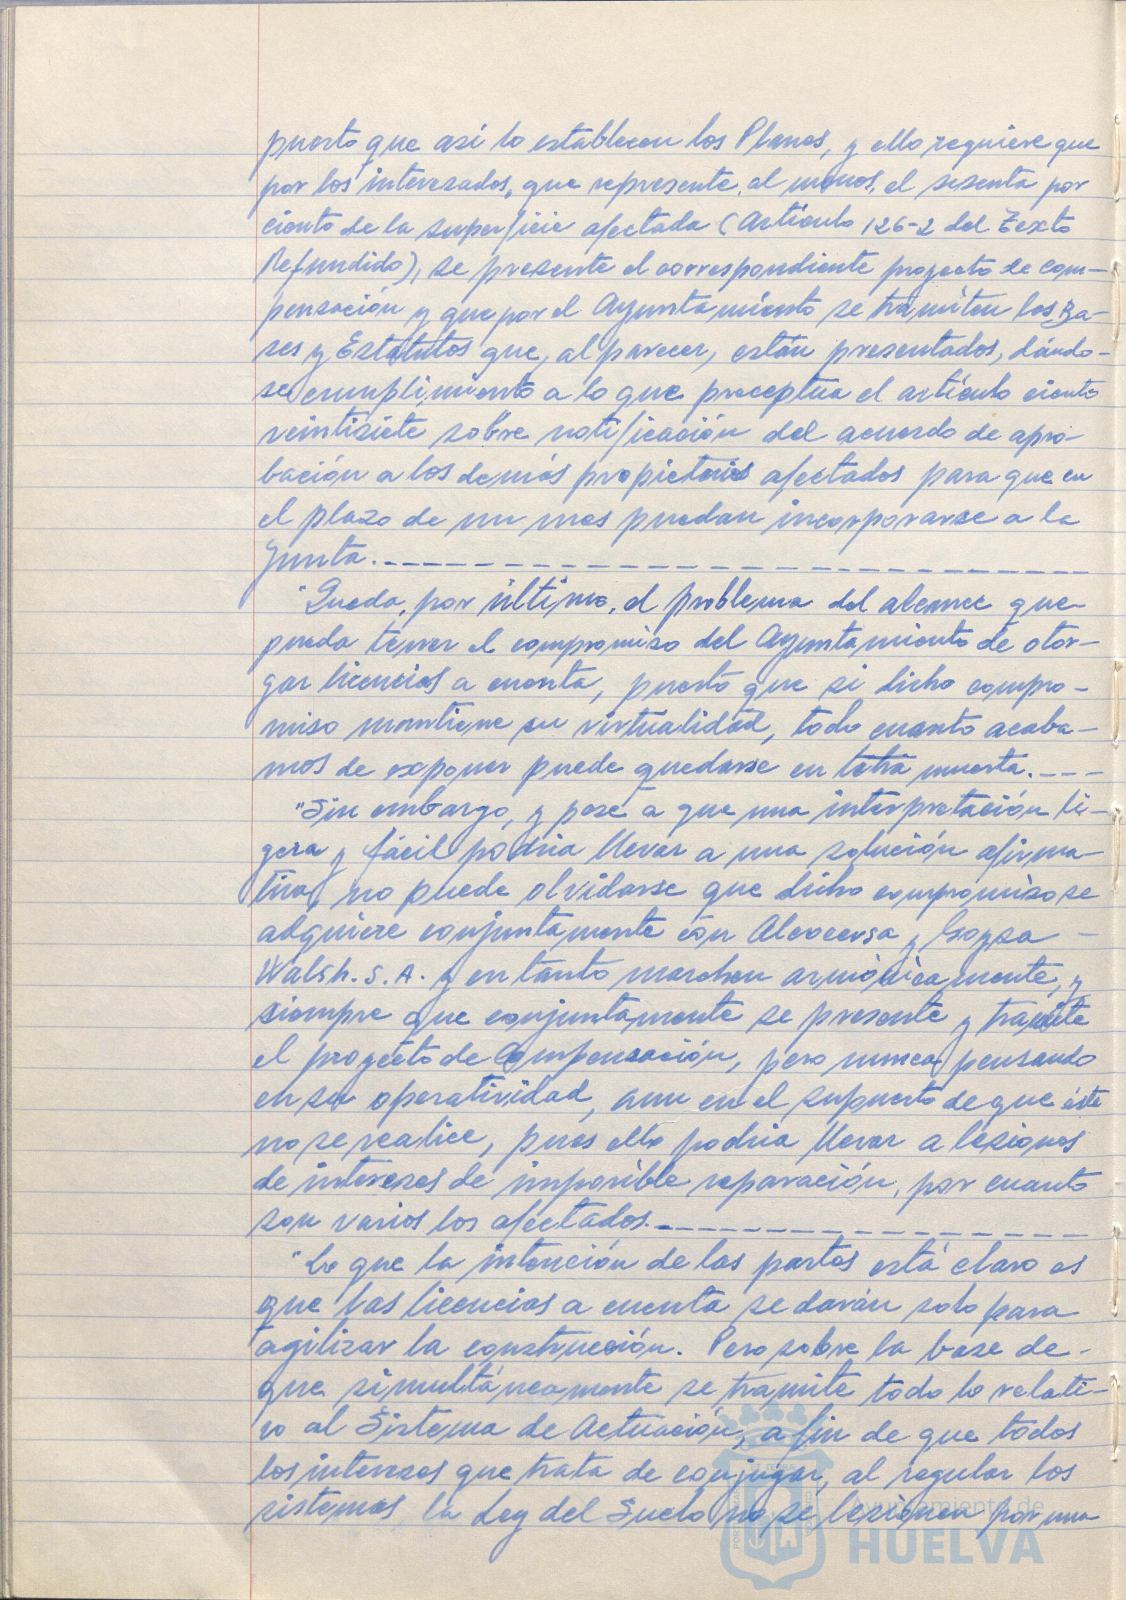 puesto que asi lo establecen los Planes, y ello requiere que
por los interesados, que represente, al menos, el sesenta por
ciento de la superficie afectada (Artículo 126-2 del Texto
Refundido), se presente el correspondiente proyecto de com-
pensación y que por el Ayuntamiento se tramiten los Ba-
ses y Estatutos que, al parecer, están presentados, dándo-
se cumplimiento a lo que preceptua el artículo ciento
veintisiete sobre notificación del acuerdo de apro-
bación a los demás propietarios afectados para que en
el plazo de un mes puedan incorporarse a la
Junta.
"Queda, por último, el problema del alcance que
pueda tener el compromiso del Ayuntamiento de otor-
gar licencias a cuenta, puesto que si dicho compro-
miso mantiene su virtualidad, todo cuanto acaba-
mos de exponer puede quedarse en letra muerta.---
"Sin embargo, y pese a que una interpretación li-
gera y fácil podría llevar a una solución afirma-
tiva, no puede olvidarse que dicho compromiso se
adquiere conjuntamente con Alcocersa y Goyza -
Walsh. S.A. y en tanto marchen armónicamente, y
siempre que conjuntamente se presente y tramite
el proyecto de Compensación, pero nunca pensando
en su operatividad, aun en el supuesto de que éste
no se realice, pues ello podría llevar a lesiones
de intereses de imposible reparación, por cuanto
son varios los afectados.
"Lo que la intención de las partes está claro es
que las licencias a cuenta se darán solo para
agilizar la construcción. Pero sobre la base de-
que simultáneamente se tramite todo lo relati-
vo al Sistema de Actuación, a fin de que todos
los intereses que trata de conjugar, al regular los
sistemas, la Ley del Suelo no se lesionen por una
Ayuntamiento de
HUELVA